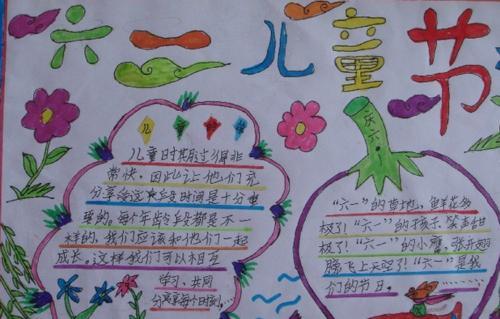 六一儿童节
庆六一
儿童时期过得非
常快,因此,让他们充
分享受这段时间是十分重
要的。每个年龄段都是不一
样的,我们应该和他们一起
成长。这样我们可以相互
学习,共同
分享每个时刻。
“六一”的营地,鲜花多
极了!“六一”的孩子,笑声甜
极了!“六一”的小鹰,张开翅
膀飞上天空了!“六一”是我
们的节日。